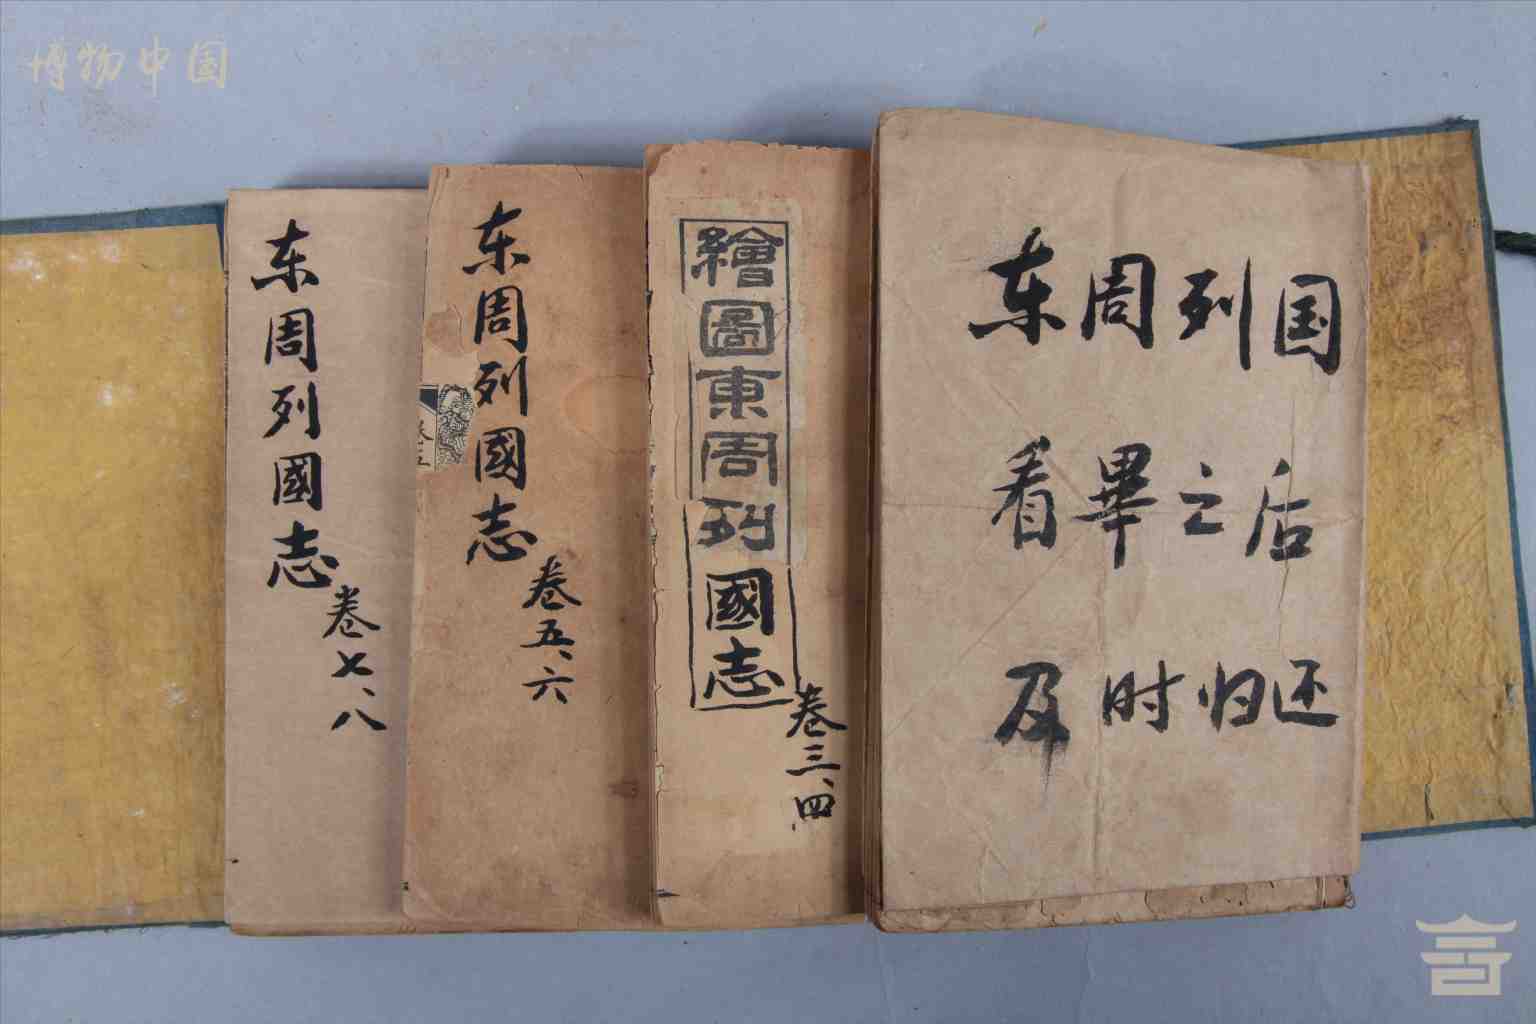 博物中国
东周列國志
卷七、八
东周列國志
卷五、六
繪圖東周列國志
卷三、四
东周列国
看畢之后
及时归还